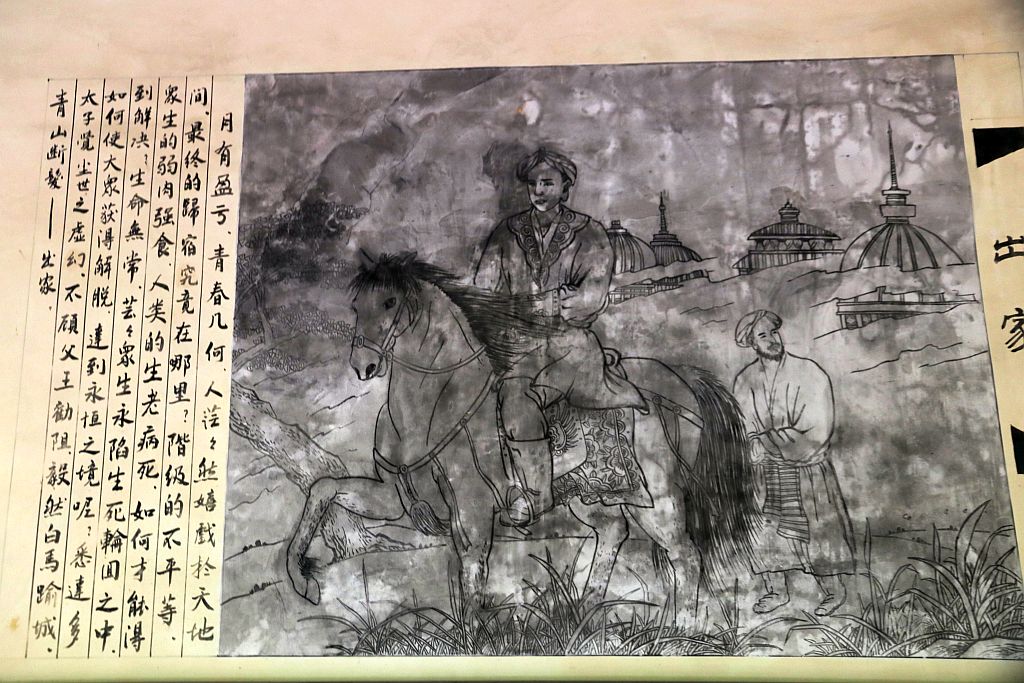 出家
月有盈亏、青春几何、人茫々然嬉戲於天地
间、最终的歸宿究竟在哪里？階级的不平等、
衆生的弱肉強食、人类的生老病死、如何才能得
到解决？生命無常、芸々衆生永陷生死輪囬之中、
如何使大衆获得解脱、達到永恒之境呢？悉達多
太子覺尘世之虚幻、不顧父王勸阻毅然白馬踰城、
青山断髮——出家。